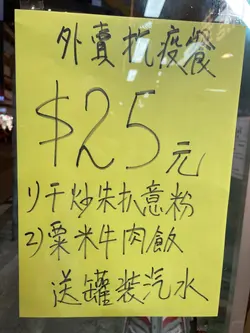 外賣抗疫餐
$25元
1)干炒朱扒意粉
2)粟米牛肉飯
送罐裝汽水